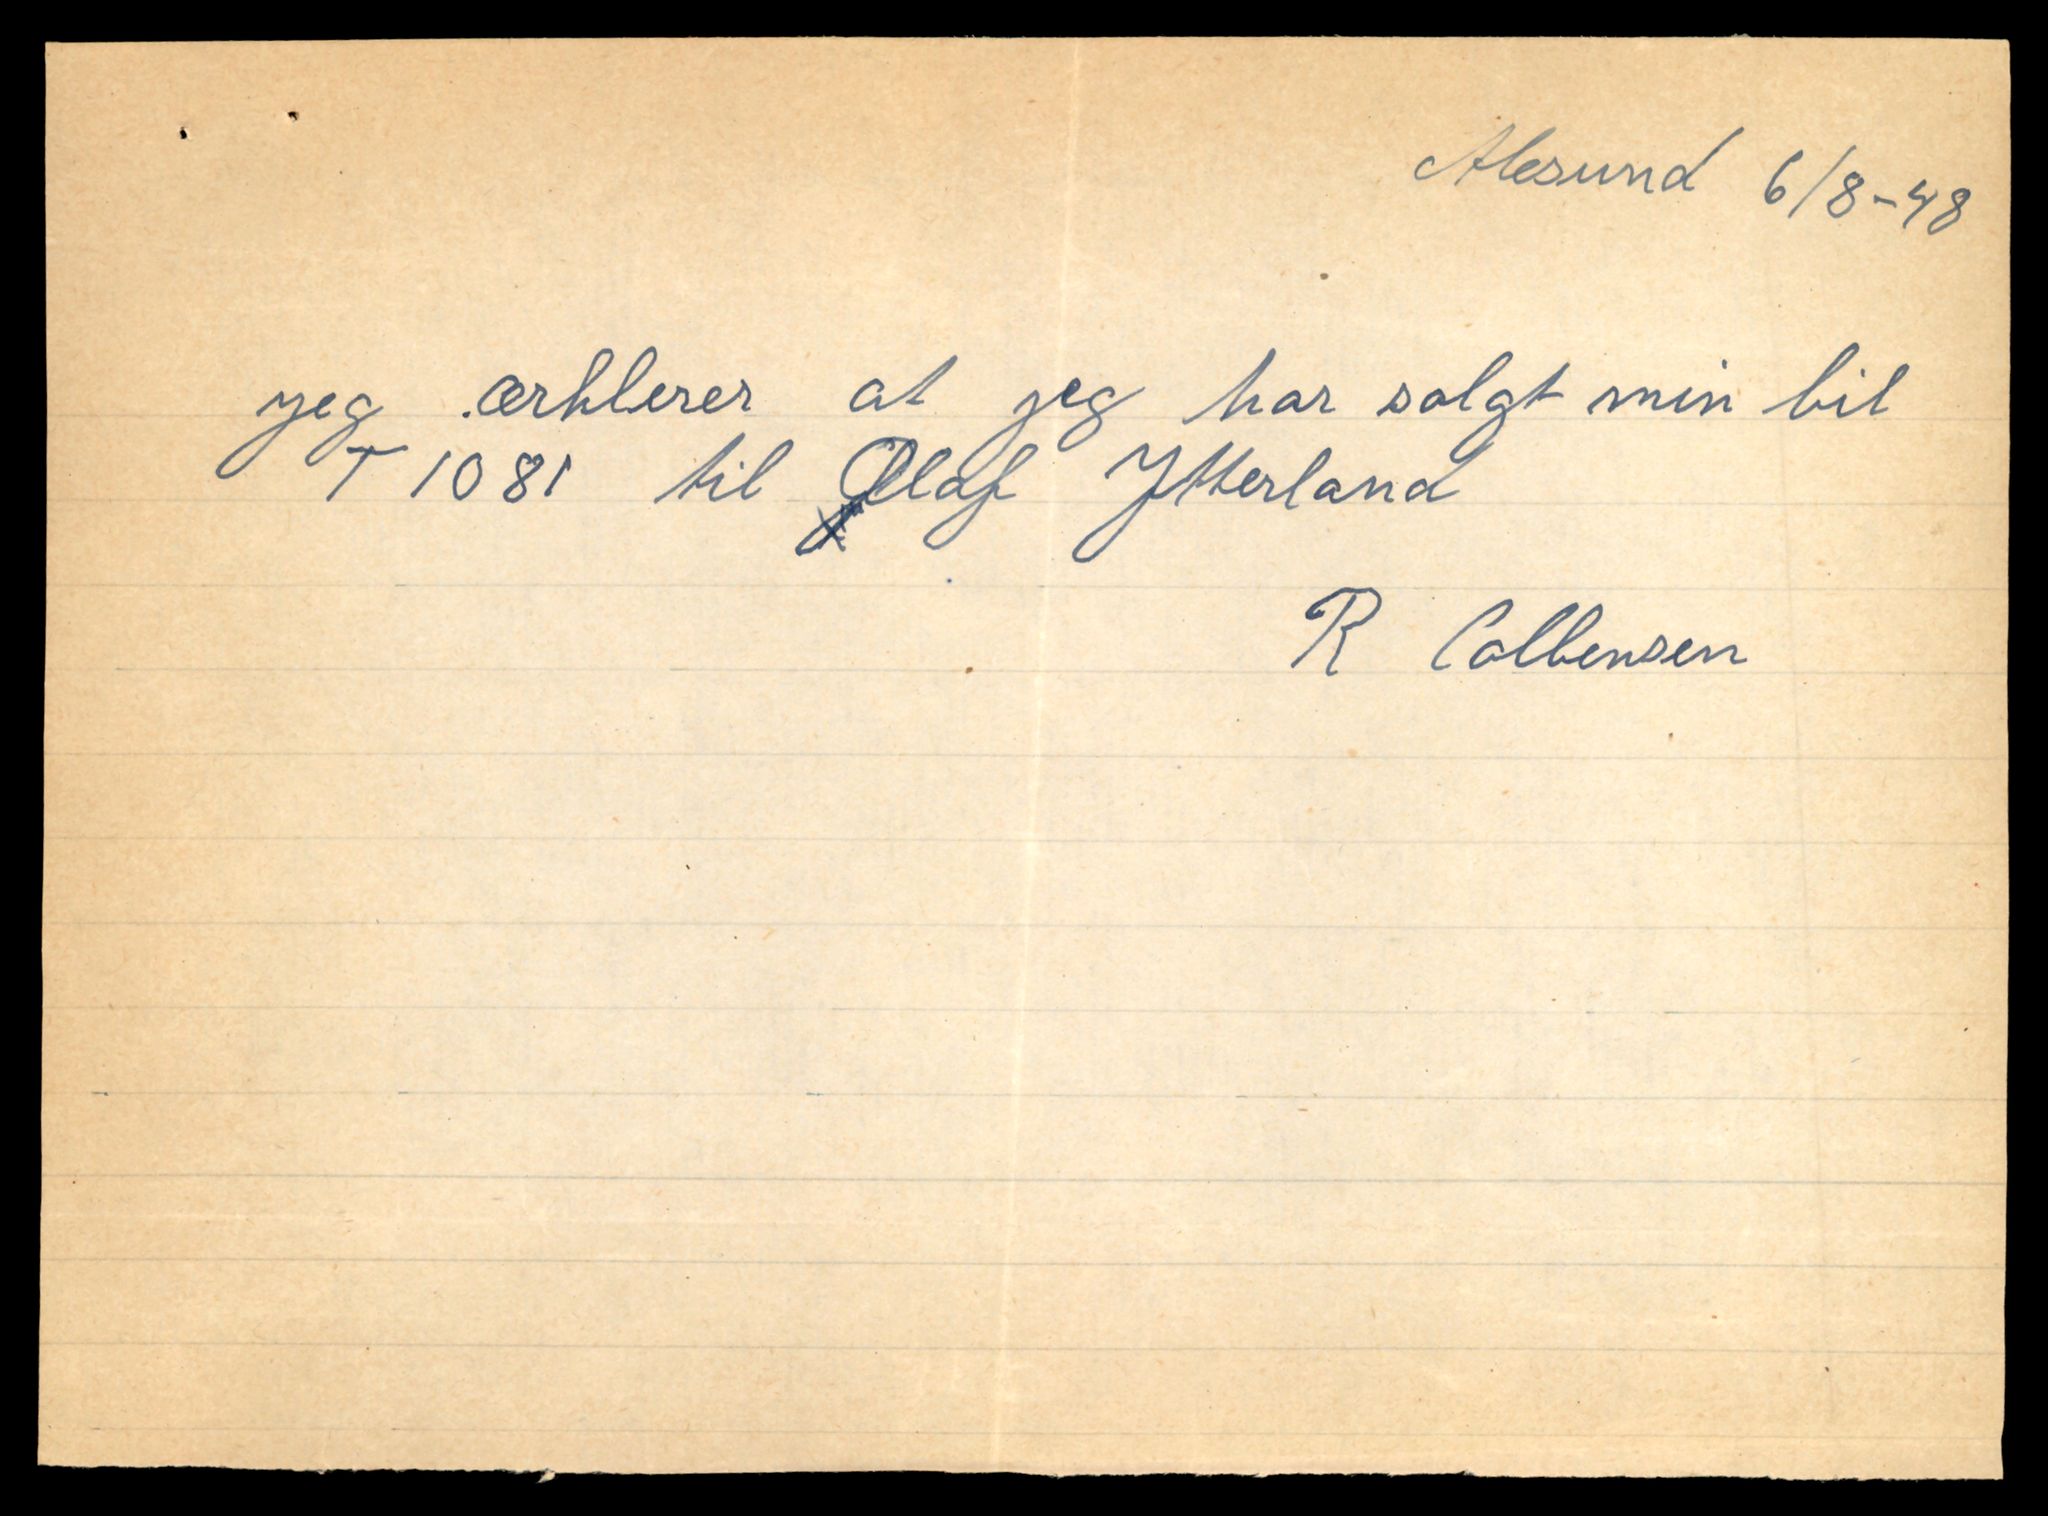 Alesund 6/8-48
jeg ærklerer at jeg har solgt min bil
T 1081 til Olaf Ytterland
R Colbensen